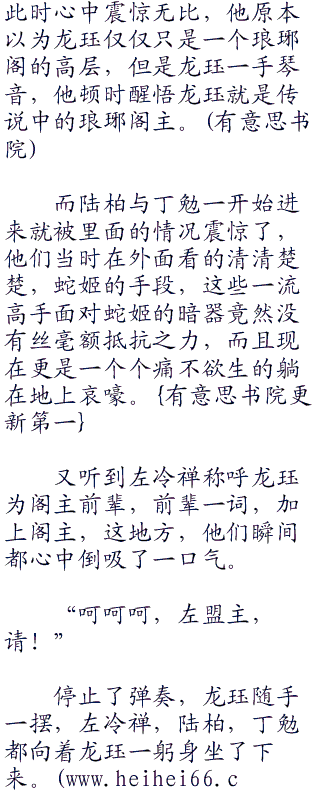 此时心中震惊无比，他原本
以为龙珏仅仅只是一个琅琊
阁的高层，但是龙珏一手琴
音，他顿时醒悟龙珏就是传
说中的琅琊阁主。(有意思书
院)
而陆柏与丁勉一开始进
来就被里面的情况震惊了，
他们当时在外面看的清清楚
楚，蛇姬的手段，这些一流
高手面对蛇姬的暗器竟然没
有丝毫额抵抗之力，而且现
在更是一个个痛不欲生的躺
在地上哀嚎。{有意思书院更
新第一}
又听到左冷禅称呼龙珏
为阁主前辈，前辈一词，加
上阁主，这地方，他们瞬间
都心中倒吸了一口气。
“呵呵呵，左盟主，
请！”
停止了弹奏，龙珏随手
一摆，左冷禅，陆柏，丁勉
都向着龙珏一躬身坐了下
来。(www.heihei66.c